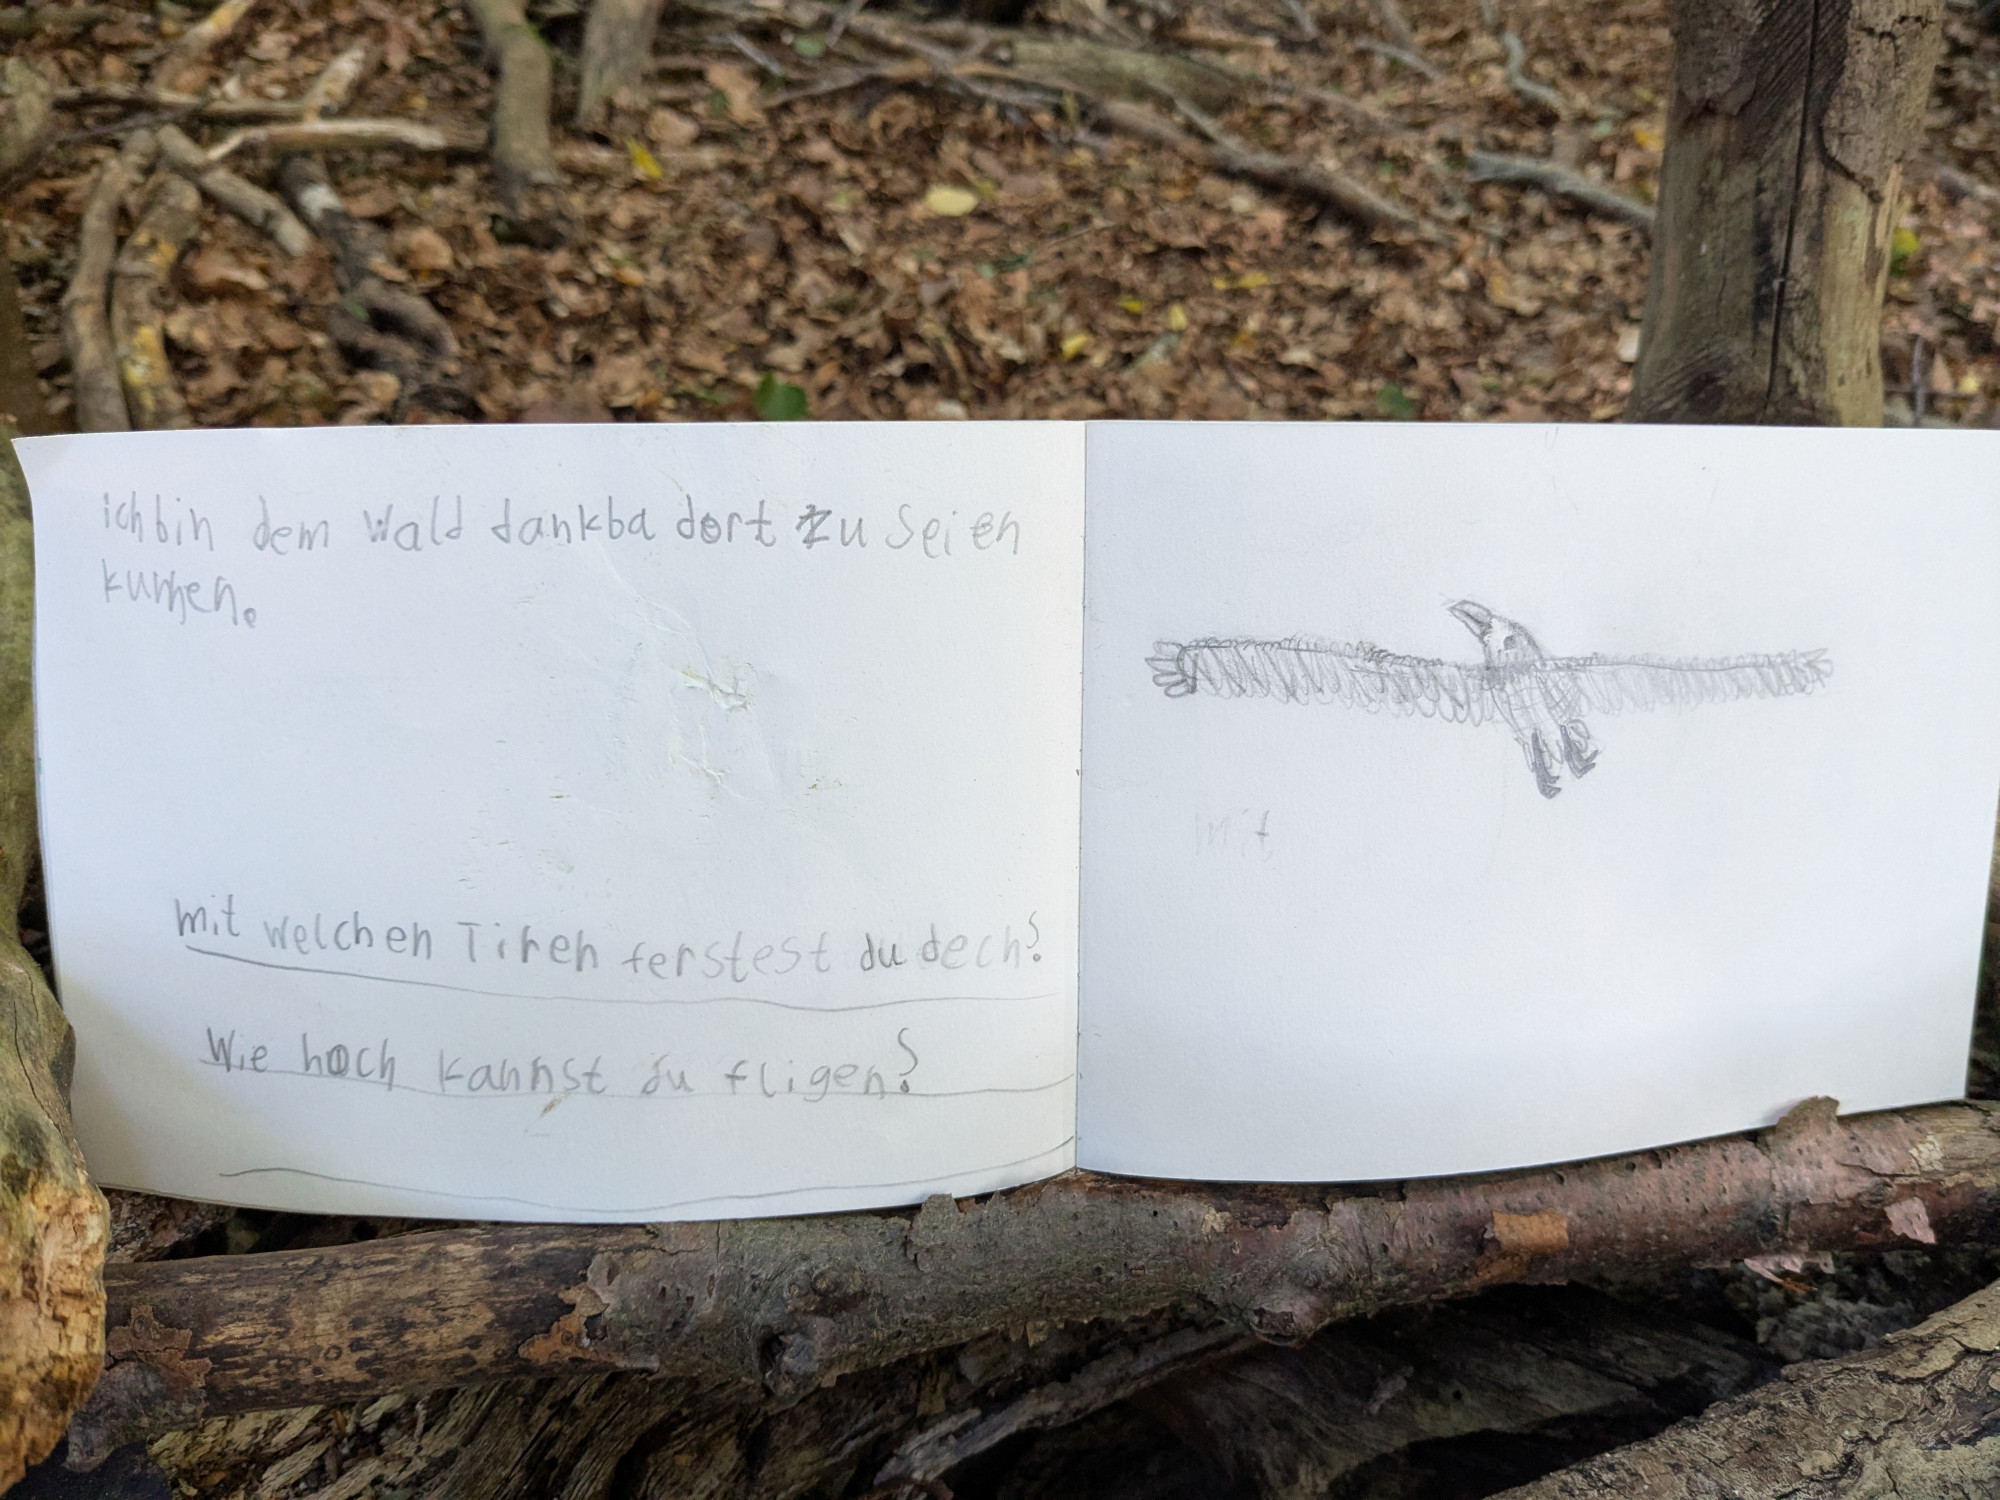 ich bin dem Wald dankba dort zu seien
kumen.
mit welchen Tiren ferstest du dech?
Wie hoch kannst du fligen?
mit